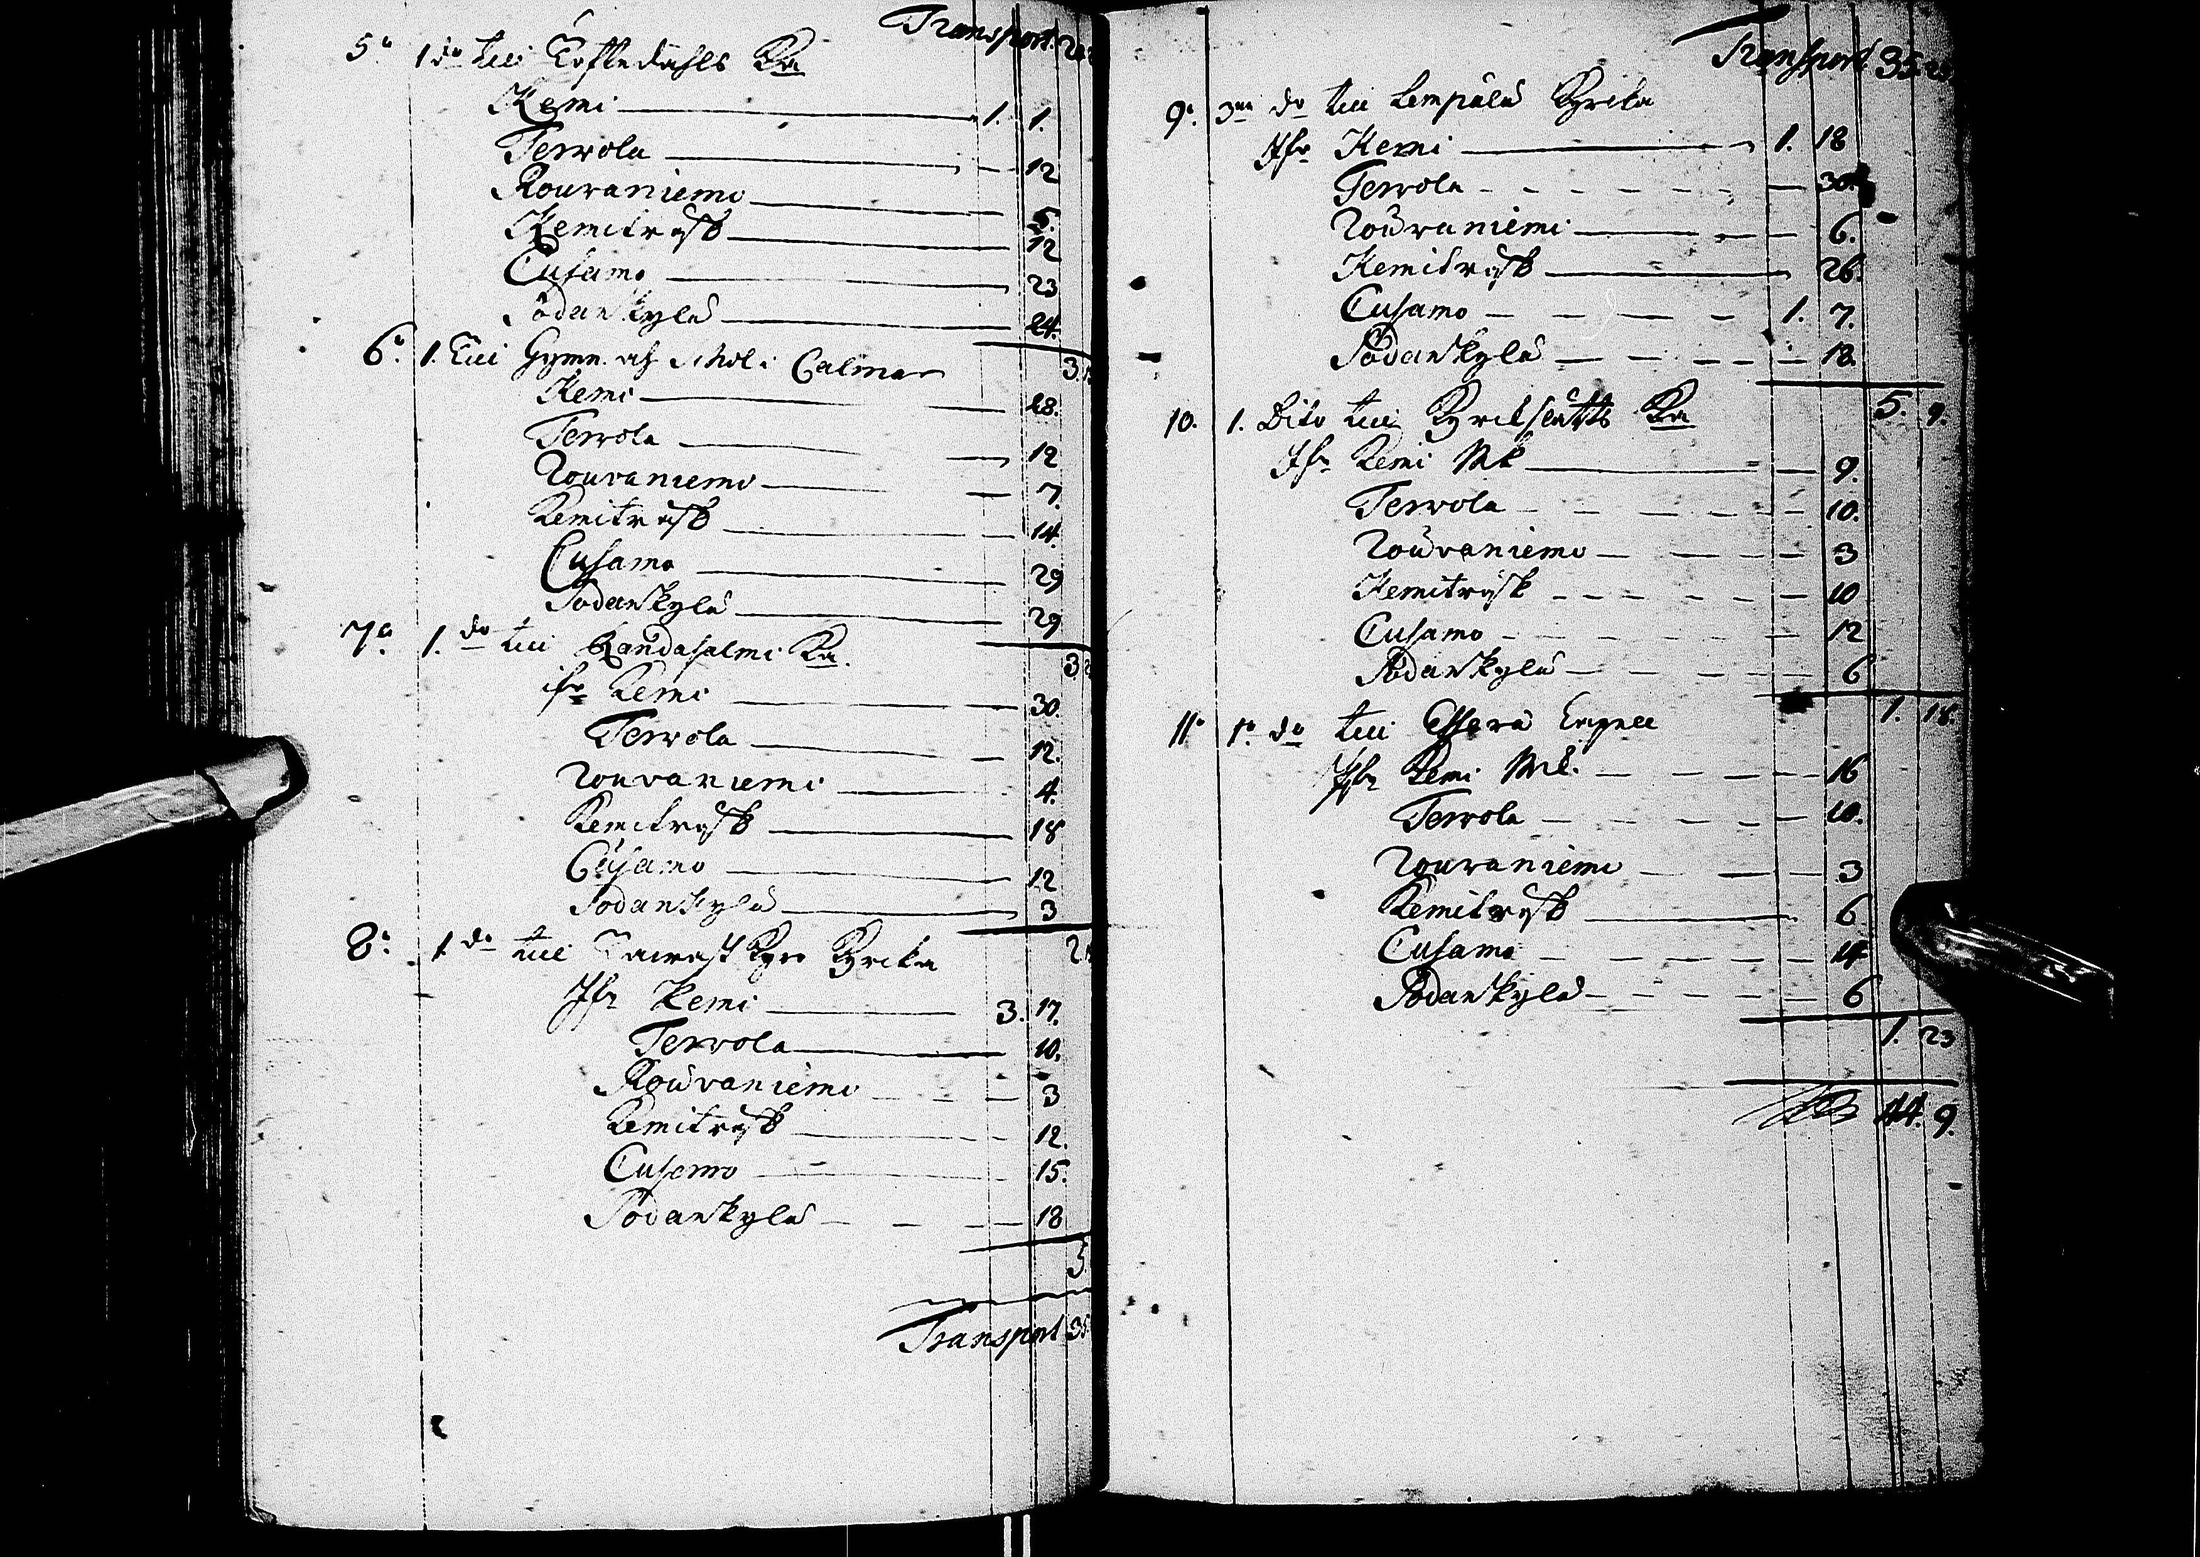 Transport 28
5. 1 do till Töftedahls Ka
Kemi 1. 1.
Terwola 12
Rouvaniemi 5.
Kemitresk 12
Cusamo 23
Sodankylä 24.
3.
6. 1. till Gymn. och Schol. i Calmar
Kemi 28.
Terwola 12
Rouvaniemi 7.
Kemitresk 14.
Cusamo 29
Sodankylä 29
3.
7. 1. do till Randasalmi Ka.
ifr Kemi 30.
Terwola 12.
Rouvaniemi 4.
Kemitresk 18
Cusamo 12
Sodankylä 3
2.
8. 1. do till Tawastkyro Kyrcka
Ifr Kemi 3. 17.
Terwola 10.
Rouvaniemi 3
Kemitresk 12.
Cusamo 15.
Sodankylä 18
5
Transport 35
Transport 35. 23
9. 3ne do till Lempälä Kyrcka
Ifr Kemi 1. 18
Terwola 30.
Rouvaniemi 6.
Kemitresk 26.
Cusamo 1. 7.
Sodankylä 18.
5. 9.
10. 1. Dito till Kyrckslätts Ka
Ifr Kemi Mk 9.
Terwola 10.
Rouvaniemi 3
Kemitresk 10
Cusamo 12
Sodankylä 6
1. 18.
11. 1. do till Essera Capell
Ifr Kemi Mk. 16
Terwola 10.
Rouvaniemi 3
Kemitresk 6
Cusamo 14
Sodankylä 6
1. 23
44. 9.